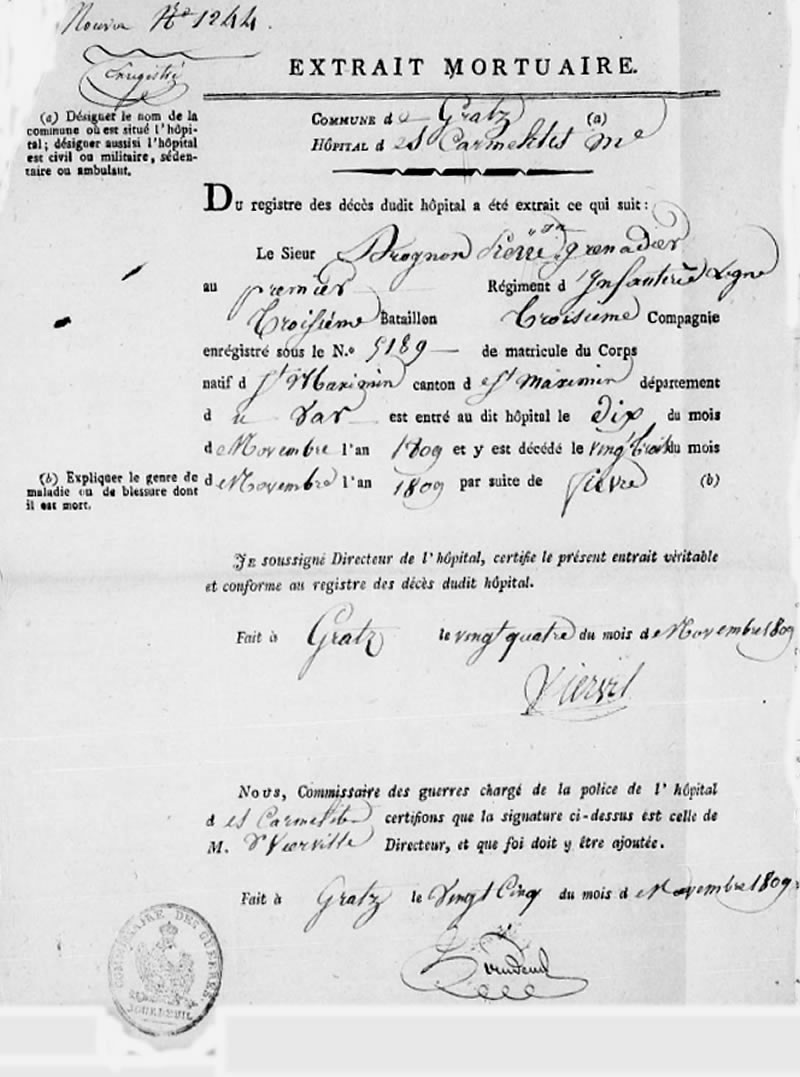 Nº 1244.
Enregistré
EXTRAIT MORTUAIRE.
(a) Désigner le nom de la
commune où est situé l'hôpi-
tal; désigner aussisi l'hôpital
est civil ou militaire, séden-
taire ou ambulant.
COMMUNE de Gratz (a)
HÔPITAL des Carmelites Me
DU registre des décès dudit hôpital a été extrait ce qui suit:
Le Sieur Drognon Pierre grenadier
au premier Régiment d'Infanterie Ligne
Troisième Bataillon Troisieme Compagnie
enrégistré sous le N.º 5189 de matricule du Corps
natif d St Maximin canton de St Maximin département
du Var est entré au dit hôpital le dix du mois
de Novembre l'an 1809 et y est décédé le vingt trois du mois
(b) Expliquer le genre de
maladie ou de blessure dont
il est mort.
de Novembre l'an 1809 par suite de fievre (b)
JE soussigné Directeur de l'hôpital, certifie le présent entrait véritable
et conforme au registre des décès dudit hôpital.
Fait à Gratz le vingt quatre du mois de Novembre 1809
Viervil
NOUS, Commissaire des guerres chargé de la police de l'hôpital
des Carmelites certifions que la signature ci-dessus est celle de
M. Vierville Directeur, et que foi doit y être ajoutée.
Fait à Gratz le Vingt Cinq du mois de Novembre 1809.
COMMISSAIRE DES GUERRES
JOURDEUIL